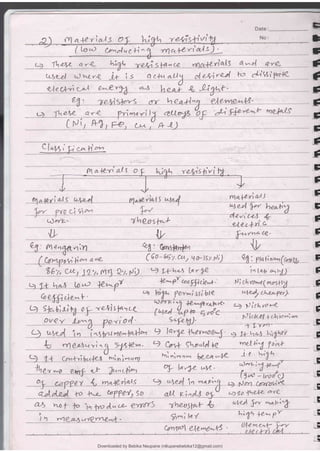 Date:
No:
2) Materials of high resistivity
(Low conducting materials).
↳ These are high resistance materials and are
used where it is actually desired to dissipate
electrical energy as heat & light.
Eg: resistors or heating elements.
↳ These are primarily alloys of different metals
(Ni, Ag, Fe, Cu, Al)
Classification
Materials of high resistivity
Materials used
for precision
work
Eg: Manganin
(Composition are
86% Cu, 12% Mn, 2% Ni)
↳ It has low tempr
Coefficient.
↳ Stability of resistance
over long period.
↳ used in instrumentation
& measuring system.
↳ It contributes minimum
thermo emf at junction
of copper & materials
added to the copper, so
as not to introduce errors
in measurement.
Materials used
for
rheostat
Eg: Constantan
(60-65% Cu, 40-35% Ni)
↳ It has large
tempr coefficient.
↳ high permissible
working temperature
(used upto 500°C
safely)
↳ large thermoemf
↳ Cost should be
minimum because
of large use.
↳ used in making
all kinds of
rheostat &
similar
control elements.
materials
used for heating
devices &
electric
furnace.
Eg: Platinum (costly
Nichrome (mostly
used, cheaper)
↳ Nichrome
Nickel + chromium
+ Iron
↳ It has higher
melting point
i.e. high
working tempr
(900-1000°C)
↳ Non corrosive
↳ so these are
used for making
high tempr
element for
electrical
Downloaded by Bebika Neupane (nikupanebebika12@gmail.com)